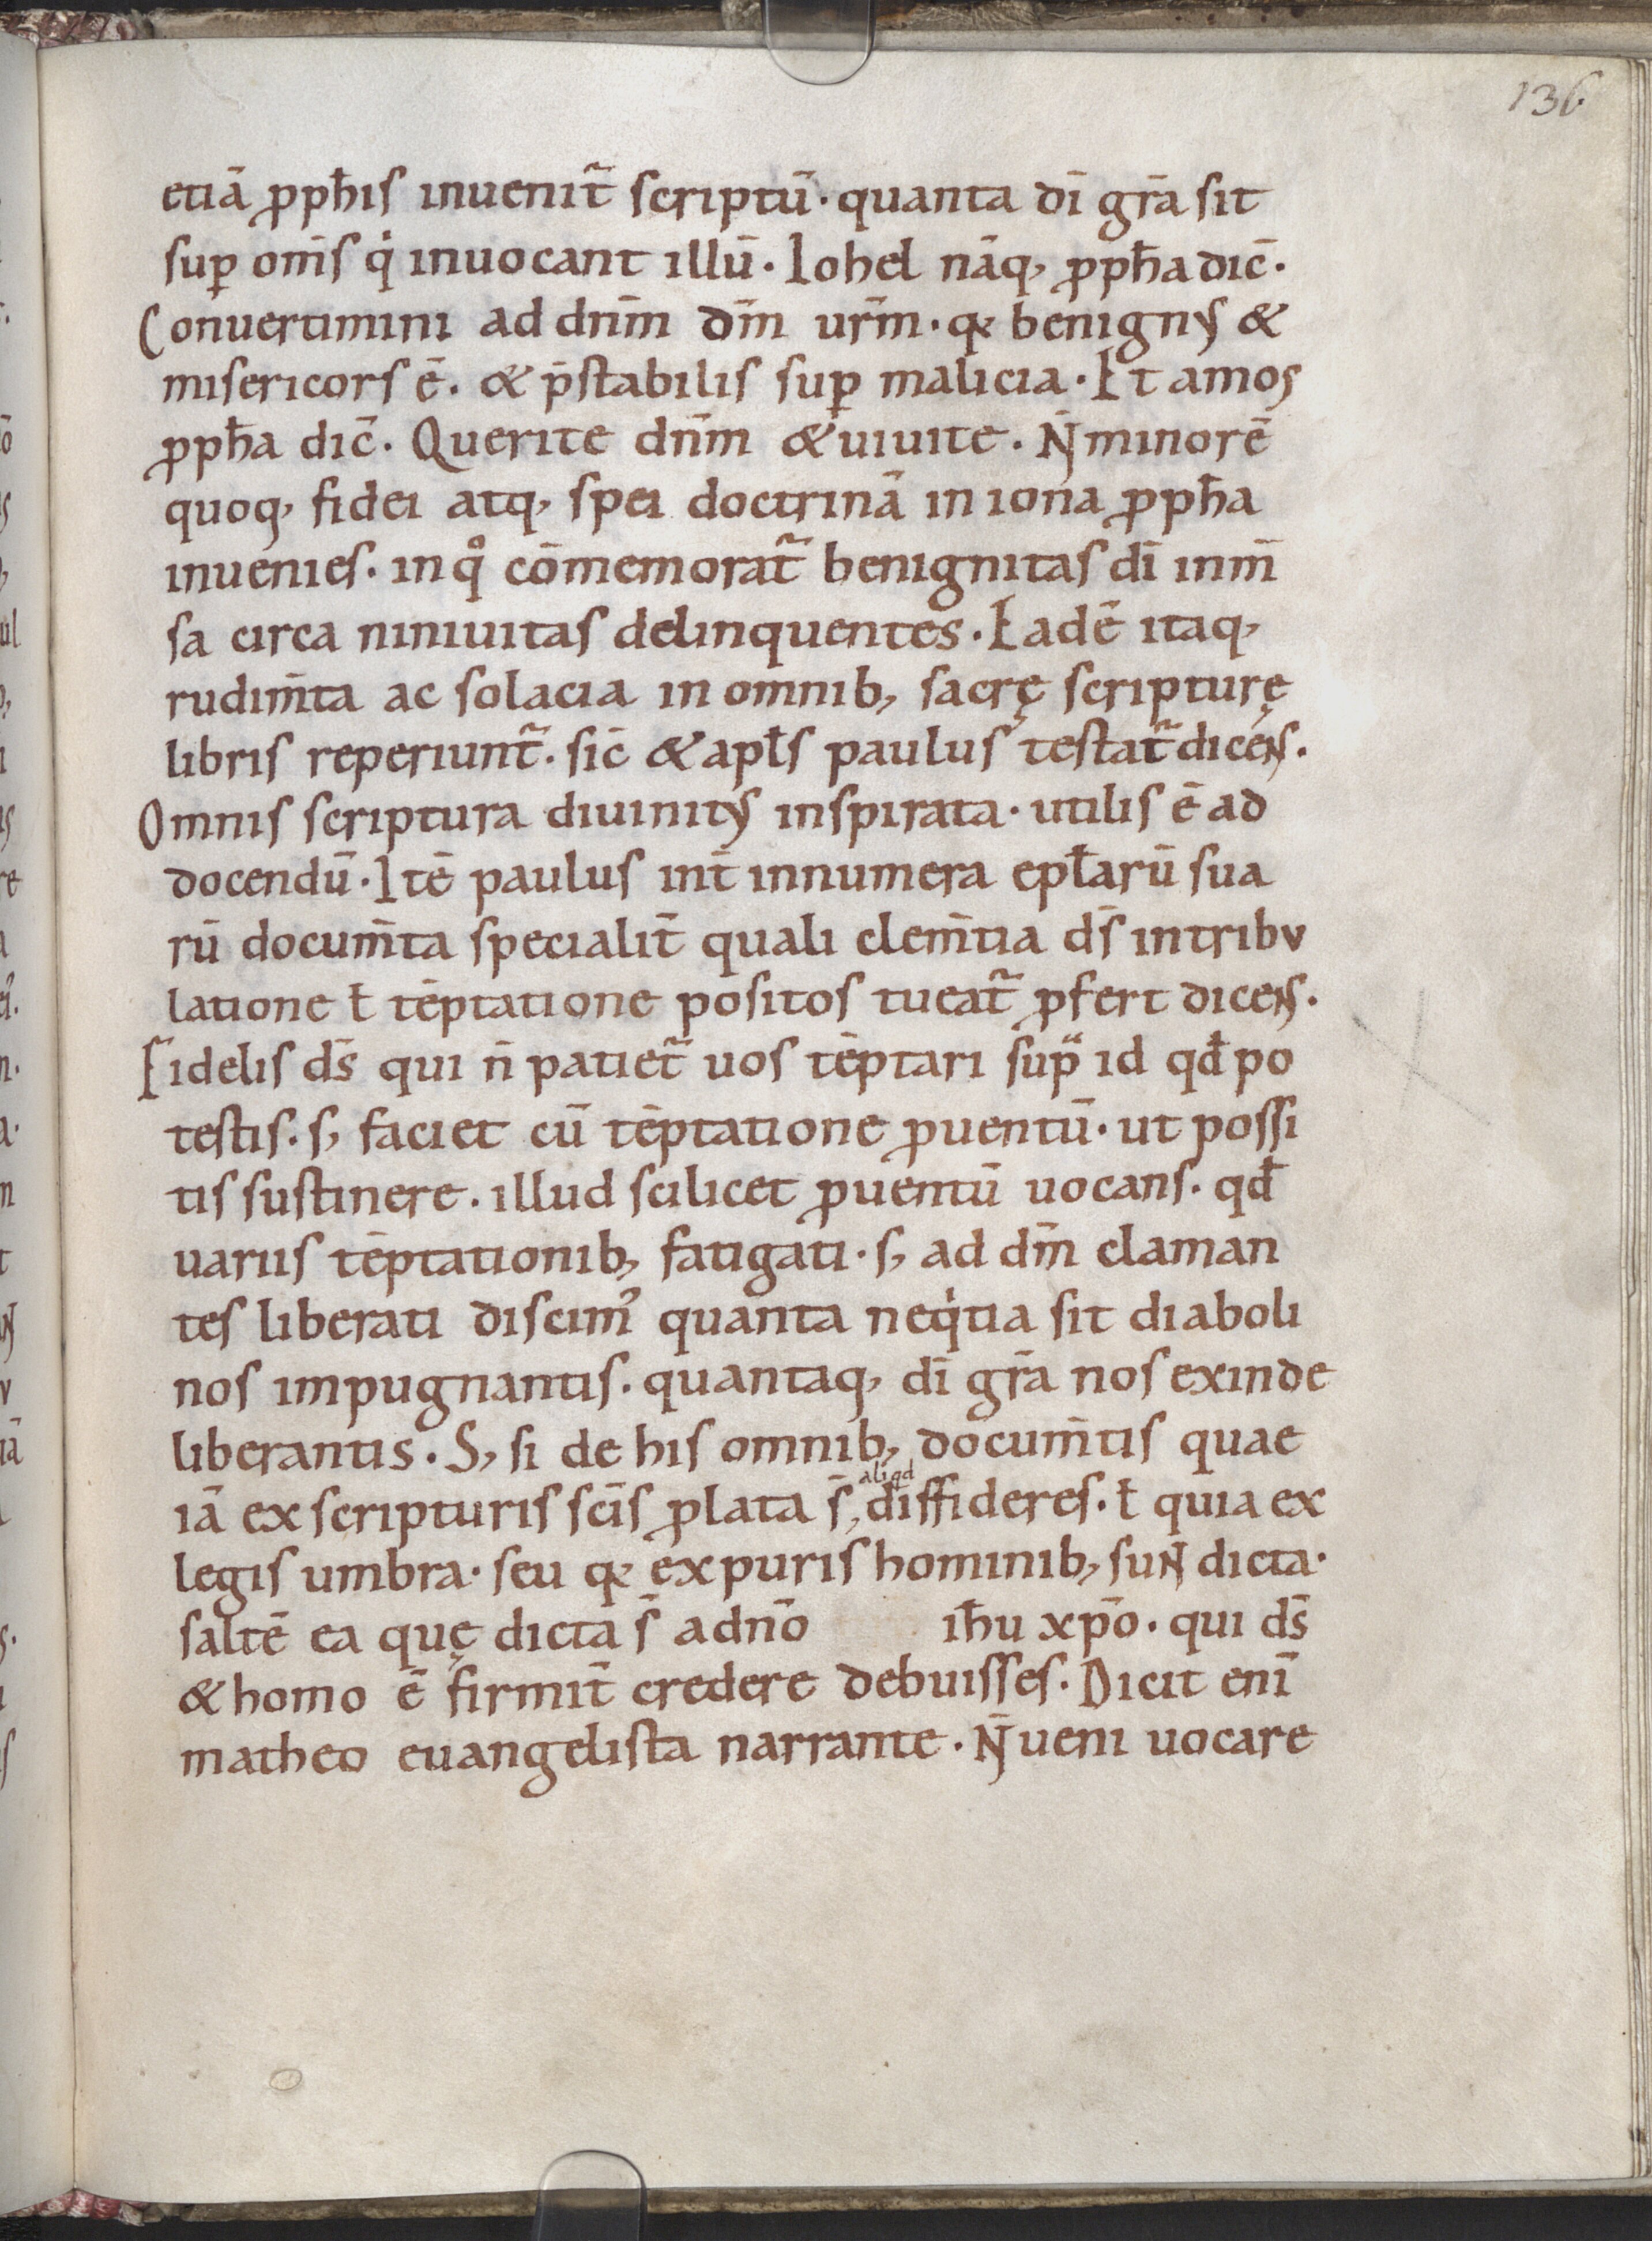 136.
etiā ꝓph̄is inuenit᷑ scriptū· quanta dī gr̄a sit
suꝑ om̄s qͥ inuocant illū· Iohel nāq, ꝓph̄a dic̄·
Conuertimini ad dn̄m dm̄ ur̄m· qꝛ benignꝰ &
misericors ē· & p̄stabilis suꝑ malicia· Et amos
ꝓph̄a dic̄· Querite dn̄m & uiuite· N̄ minorē
quoq, fidei atq, spei doctrinā in iona ꝓph̄a
inuenies· in qͦ cōmemorat᷑ benignitas dī inm̄
sa circa niniuitas delinquentes· Eadē itaq,
rudim̄ta ac solacia in omnib, sacrę scripturę
libris reperiunt᷑· sic̄ & apl̄s paulus testat᷑ dicens·
Omnis scriptura diuinitꝰ inspirata· utilis ē ad
docendū· Itē paulus int̄ innumera epl̄arū sua
rū docum̄ta specialit̄ quali clem̄tia ds̄ in tribu
latione ł tēptatione positos tueat᷑ ꝓfert dicens·
Fidelis ds̄ qui n̄ patiet᷑ uos tēptari supᷓ id qd̄ po
testis· s, faciet cū tēptatione ꝓuentū· ut possi
tis sustinere· illud scilicet ꝓuentū uocans· qd̄
uariis tēptationib, fatigati· s, ad dm̄ claman
tes liberati discimꝰ quanta neqͥtia sit diaboli
nos impugnantis· quantaq, dī gr̄a nos exinde
liberantis· S, si de his omnib, docum̄tis quae
aliqd
iā ex scripturis sc̄is ꝓlata s̄, diffideres· ł quia ex
legis umbra· seu qꝛ ex puris hominib, sunt dicta·
saltē ea quę dicta s̄ a dn̄o ih̄u xp̄o· qui ds̄
& homo ē firmit̄ credere debuisses· Dicit enī
matheo euangelista narrante· N̄ ueni uocare